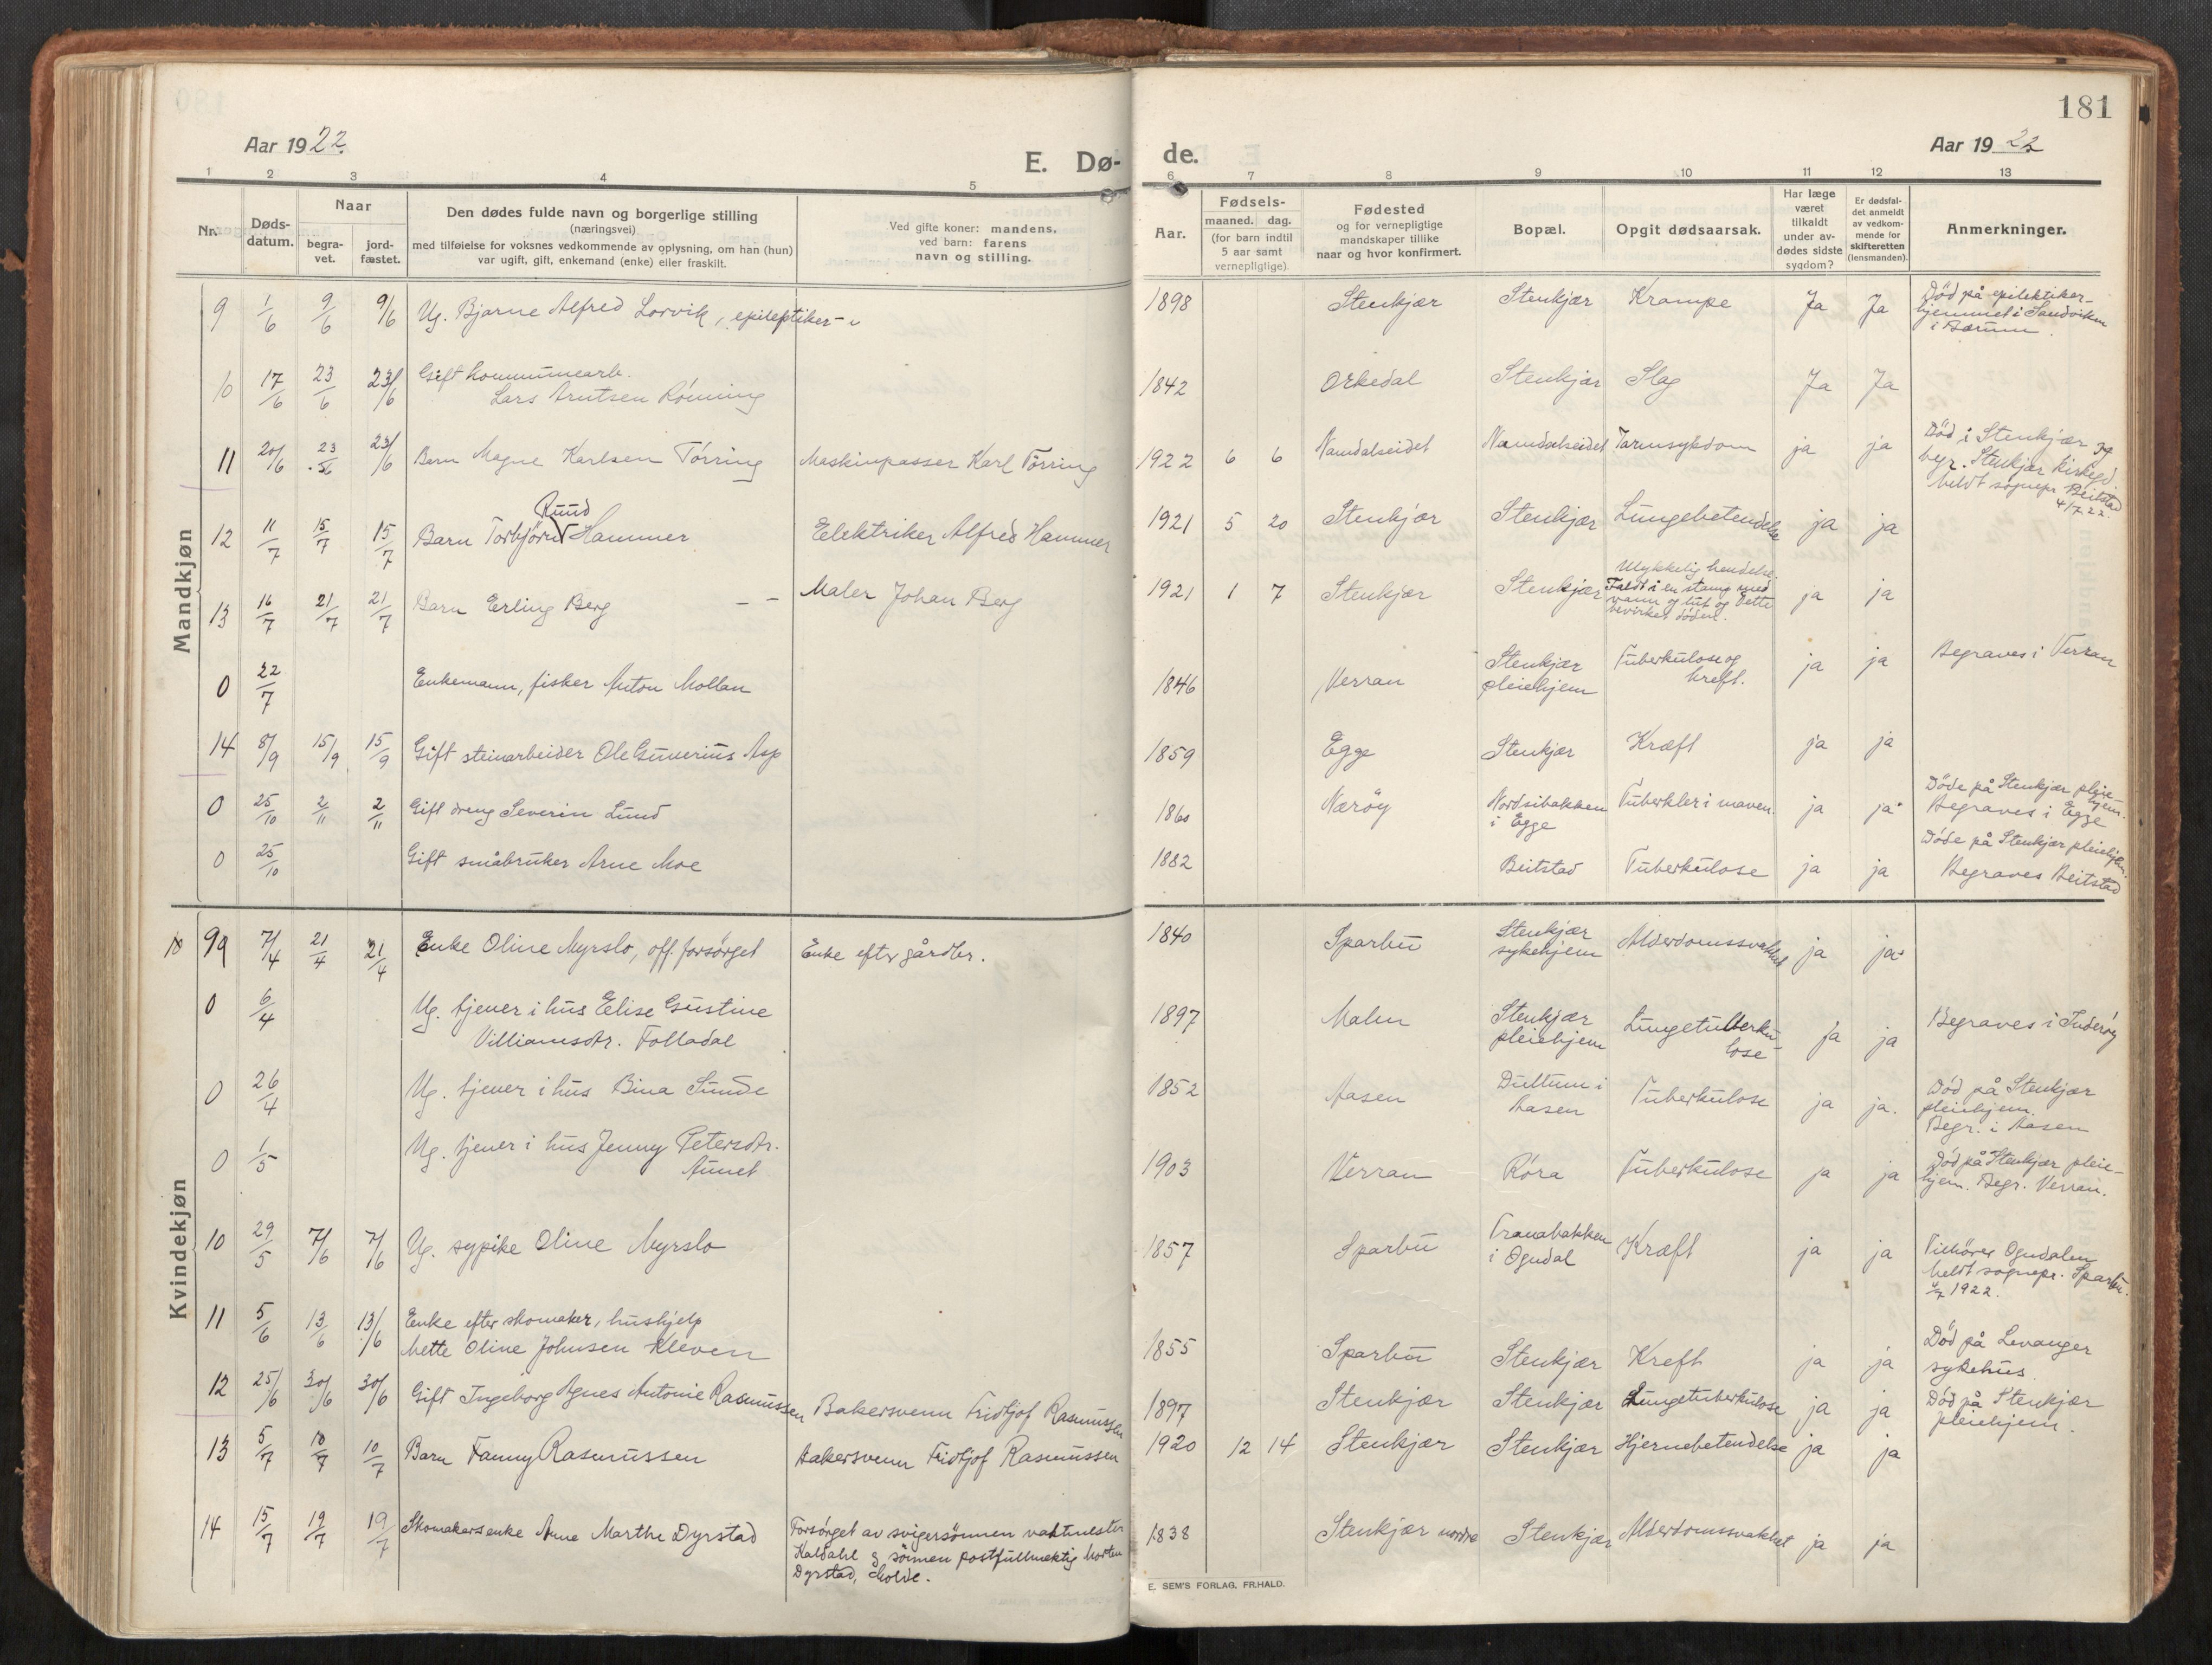 181
Aar 1922.
E. Dø-
de.
Aar 1922
1 2 3 4 5 6 7 8 9 10 11 12 13
Nr.
Døds-
datum.
Naar
begra-
vet.
jord-
fæstet.
Den dødes fulde navn og borgerlige stilling
(næringsvei)
med tilføielse for voksnes vedkommende av oplysning, om han (hun)
var ugift, gift, enkemand (enke) eller fraskilt.
Ved gifte koner: mandens.
ved barn: farens
navn og stilling.
Aar.
Fødsels-
maaned. dag.
(for barn indtil
5 aar samt
vernepligtige).
Fødested
og for vernepligtige
mandskaper tillike
naar og hvor konfirmert.
Bopæl.
Opgit dødsaarsak.
Har læge
været
tilkaldt
under av-
dødes sidste
sygdom?
Er dødsfal-
det anmeldt
av vedkom-
mende for
skifteretten
(lensmanden).
Anmerkninger.
Mandkjøn
9 1/6 9/6 9/6 Ug. Bjarne Alfred Lorvik, epileptiker - 1898 Stenkjær Stenkjær Krampe Ja Ja
Død på epilektiker-
hjemmet i Sandviken
i Bærum.
10 17/6 23/6 23/6 Gift kommunearb.
Lars Arntsen Rønning 1842 Orkedal Stenkjær Slag Ja Ja
11 20/6 23/6 23/6 Barn Magne Karlsen Tørring Maskinpasser Karl Tørring 1922 6 6 Namdalseidet Namdalseidet Tarmsykdom ja ja
Død i Stenkjær og
begr. Stenkjær kirkegd.
Meldt sognepr. Beitstad
4/7 22.
Ruud
12 11/7 15/7 15/7 Barn Torbjørn Hammer Elektriker Alfred Hammer 1921 5 20 Stenkjær Stenkjær Lungebetendelse ja ja
13 16/7 21/7 21/7 Barn Erling Berg - - Maler Johan Berg 1921 1 7 Stenkjær Stenkjær
Ulykkelig hendelse.
Faldt i en stamp med
vann og lut og dette
bevirket døden. ja ja
0 22/7 Enkemann, fisker Anton Mollan 1846 Verran Stenkjær
pleiehjem
Tuberkulose og
kreft. ja ja Begraves i Verran
14 8/9 15/9 15/9 Gift steinarbeider Ole Gunerius Asp 1859 Egge Stenkjær Kræft ja ja
0 25/10 2/11 2/11 Gift dreng Severin Lund 1860 Nærøy Nordsibakken
i Egge Tuberkler i maven. ja ja
Døde på Stenkjær pleie-
hjem.
Begraves i Egge
0 25/10 Gift småbruker Arne Moe 1882 Beitstad Tuberkulose ja ja
Døde på Stenkjær pleiehjem.
Begraves Beitstad
Kvindekjøn
10 99 7/4 21/4 21/4 Enke Oline Myrslo, off. forsørget Enke efter gårdbr. 1840 Sparbu Stenkjær
sykehjem Alderdomssvakhet ja ja
0 6/4 Ug. tjener i hus Elise Gustine
Villiamsdtr. Folladal 1897 Malm Stenkjær
pleiehjem Lungetuberku-
lose ja ja Begraves i Inderøy
0 26/4 Ug. tjener i hus Bina Sunde 1852 Aasen Dullum i
Aasen Tuberkulose ja ja.
Død på Stenkjær
pleiehjem.
Begr. i Aasen
0 1/5 Ug. tjener i hus Jenny Petersdtr.
Aunet 1903 Verran Røra Tuberkulose ja ja
Død på Stenkjær pleie-
hjem. Begr. Verran.
10 29/5 7/6 7/6 Ug. sypike Oline Myrslo 1857 Sparbu Tranabakken
i Ogndal Kræft ja ja
Tilhører Ogndalen
Meldt sognepr. Sparbu.
4/7 1922.
11 5/6 13/6 13/6 Enke efter skomaker, hushjelp
Mette Oline Johnsen Kleven 1855 Sparbu Stenkjær Kreft ja ja
Død på Levanger
sykehus.
12 25/6 30/6 30/6 Gift Ingeborg Agnes Antonie Rasmussen Bakersvenn Fridtjof Rasmussen 1897 Stenkjær Stenkjær Lungetuberkulose ja ja
Død på Stenkjær
pleiehjem.
13 5/7 10/7 10/7 Barn Fanny Rasmussen Bakersvenn Fridtjof Rasmussen 1920 12 14 Stenkjær Stenkjær Hjernebetendelse ja ja
14 15/7 19/7 19/7 Skomakersenke Anne Marthe Dyrstad Forsørget av svigersønnen vaktmester
Kaldahl og sønnen postfullmektig Morten
Dyrstad, Molde. 1838 Stenkjær nordre Stenkjær Alderdomssvakhet ja ja
E. SEM'S FORLAG. FR.HALD.